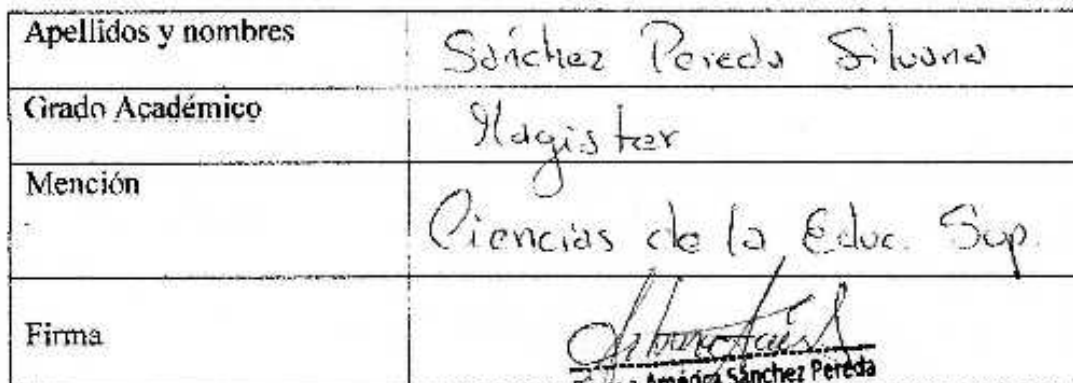 Apellidos y nombres Sánchez Pereda Silvana
Grado Académico Magister
Mención Ciencias de la Educ. Sup.
Firma
América Sánchez Pereda